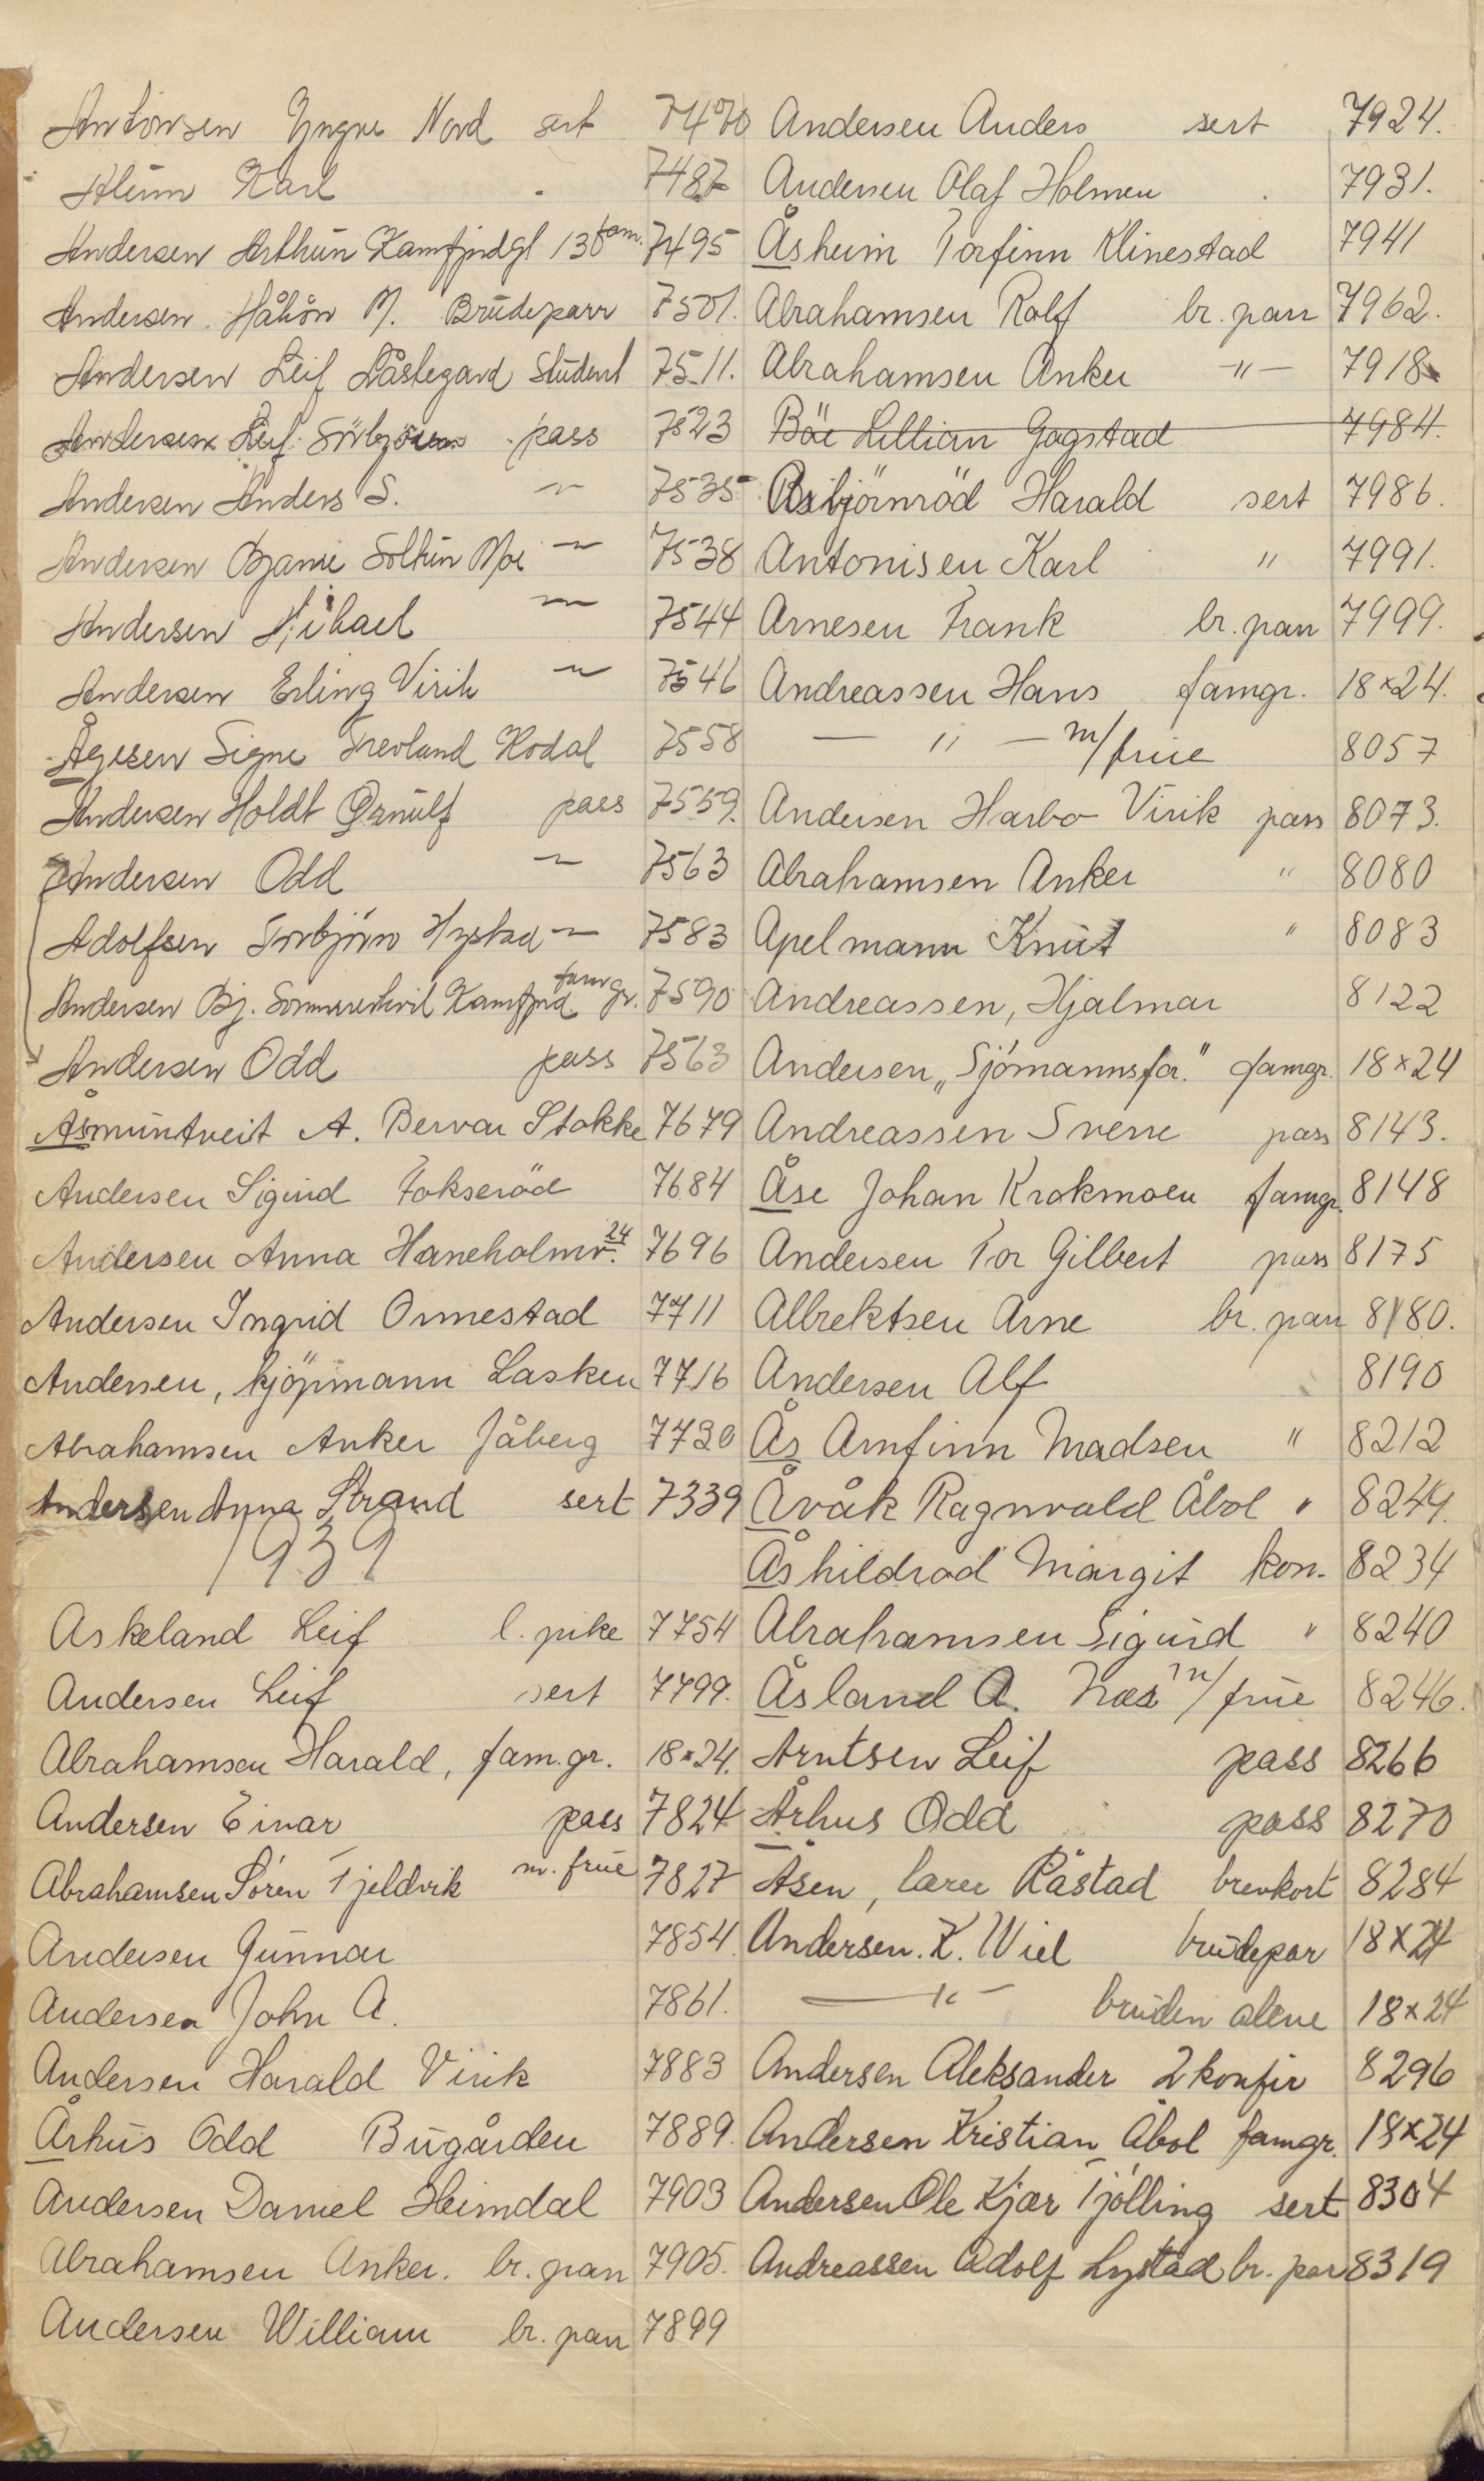 Antonsen Yngve Nord sert 7470
Karl 7487
Andersen Arthur Kamfjordgt 13 fam. 7495
Andersen Håkon M. Brudeparr 7501.
Andersen Leif Råstegard Student 7511.
Andersen Leif Sörbyöen pass 7523
Andersen Anders S. " 7535
Andersen Bjarne Soltun Moe " 7538
Andersen Mikael " 7544
Andersen Erling Virik " 7546
Ågesen Signe Trevland Kodal 7558
Andersen Holdt Ørnulf pass 7559.
Andersen Odd " 7563
Adolfsen Torbjörn Hystad " 7583
Andersen Bj. Sommerhvil Kamfjord famgr. 7590
Andersen Odd pass 7563
Åsmuntveit A. Bervar Stokke 7679
Andersen Sigurd Fokseröd 7684
Andersen Anna Haneholmv. 24 7696
Andersen Ingrid Ormestad 7711
Andersen, kjöpmann Lasken 7716
Abrahamsen Anker Jåberg 7730
Andersen Anna Strand sert 7339
1939
Askeland Leif l. pike 7754
Andersen Leif sert 7799.
Abrahamsen Harald, fam. gr. 18x24.
Andersen Einar pass 7824
Abrahamsen Sören Tjeldvik m. frue 7827
Andersen Gunnar 7854.
Andersen John A. 7861.
Andersen Harald Virik 7883
Århus Odd Bugården 7889.
Andersen Daniel Heimdal 7903
Abrahamsen Anker. br. parr 7905.
Andersen William br. parr 7899
Andersen Anders sert 7924.
Andersen Olaf Holmen . 7931.
Åsheim Torfinn Klinestad 7941
Abrahamsen Rolf br. parr 7962.
Abrahamsen Anker —"— 7918
Böe Lillian Gogstad 7984.
Asbjörnröd Harald sert 7986.
Antonisen Karl " 7991.
Arnesen Frank br. parr 7999.
Andreassen Hans famgr. 18x24.
— " — m/frue 8057
Andersen Harbo Virik pass 8073.
Abrahamsen Anker " 8080
Apelmann Knut " 8083
Andreassen, Hjalmar 8122
Andersen „Sjömannsfor." famgr. 18x24
Andreassen Sverre pass 8143.
Åse Johan Krokmoen famgr. 8148
Andersen Tor Gilbert pass 8175
Albrektsen Arne br. parr 8180.
Andersen Alf 8190
Ås Arnfinn Madsen " 8212
Åvåk Ragnvald Åbol " 8224.
Åshildrød Margit kon. 8234
Abrahamsen Sigurd " 8240
Åsland A. Næs m/frue 8246.
Arntsen Leif pass 8266
Århus Odd pass 8270
Åsen, lærer Råstad brevkort 8284
Andersen. K. Wiel brudepar 18x24
— " — bruden alene 18x24
Andersen Aleksander 2 konfir 8296
Andersen Kristian Åbol famgr. 18x24
Andersen Ole Kjær Tjölling sert 8304
Andreassen Adolf Lystad br. par 8319